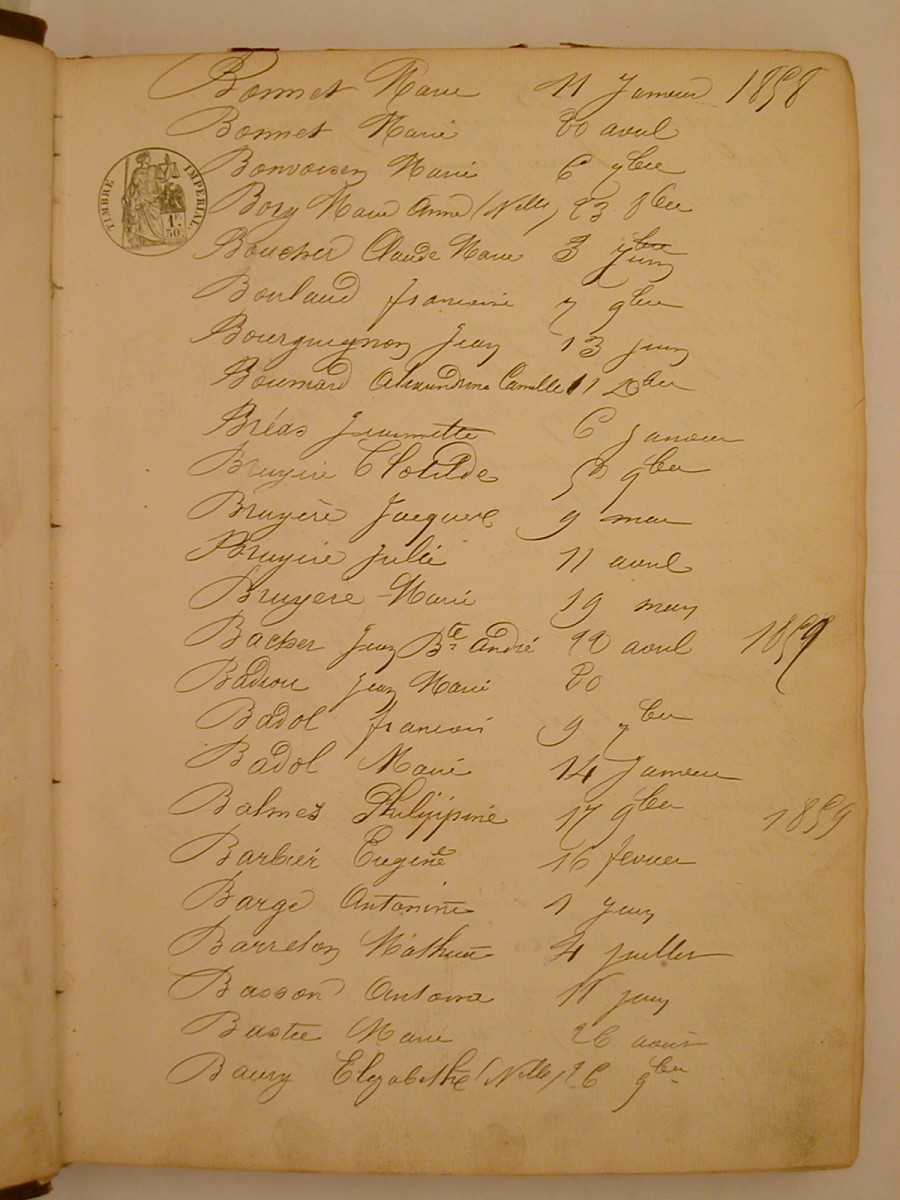 Bonnet Marie 11 Janvier 1858
Bonnet Marie 20 avril
Bonvoisin Marie 6 9bre
TIMBRE IMPERIAL
1F 50c
Bory Marie Anne (Nelly) 23 8bre
Boucher Claude Marie 3 7bre
Boulaud francoise 7 9bre
Bourguignon Jean 13 juin
Boumard Alexandrine Camille 11 Xbre
Bréas Jeannette 6 janvier
Bruyère Clotilde 9bre
Bruyère Jacques 9 mai
Bruyère Julie 11 avril
Bruyère Marie 19 mars
Bacher Jean Bte André 20 avril 1859
Badiou Jean Marie 20
Badol francois 9 7bre
Badol Marie 14 Janvier
Balmes Philippine 17 9bre 1859
Barbier Eugène 16 fevrier
Barge Antoinette 1 Juin
Barreton Mathieu 4 juillet
Basson Antoine 11 juin
Bastie Marie 26 août
Baury Elyzabethe (Nelly) 26 9bre